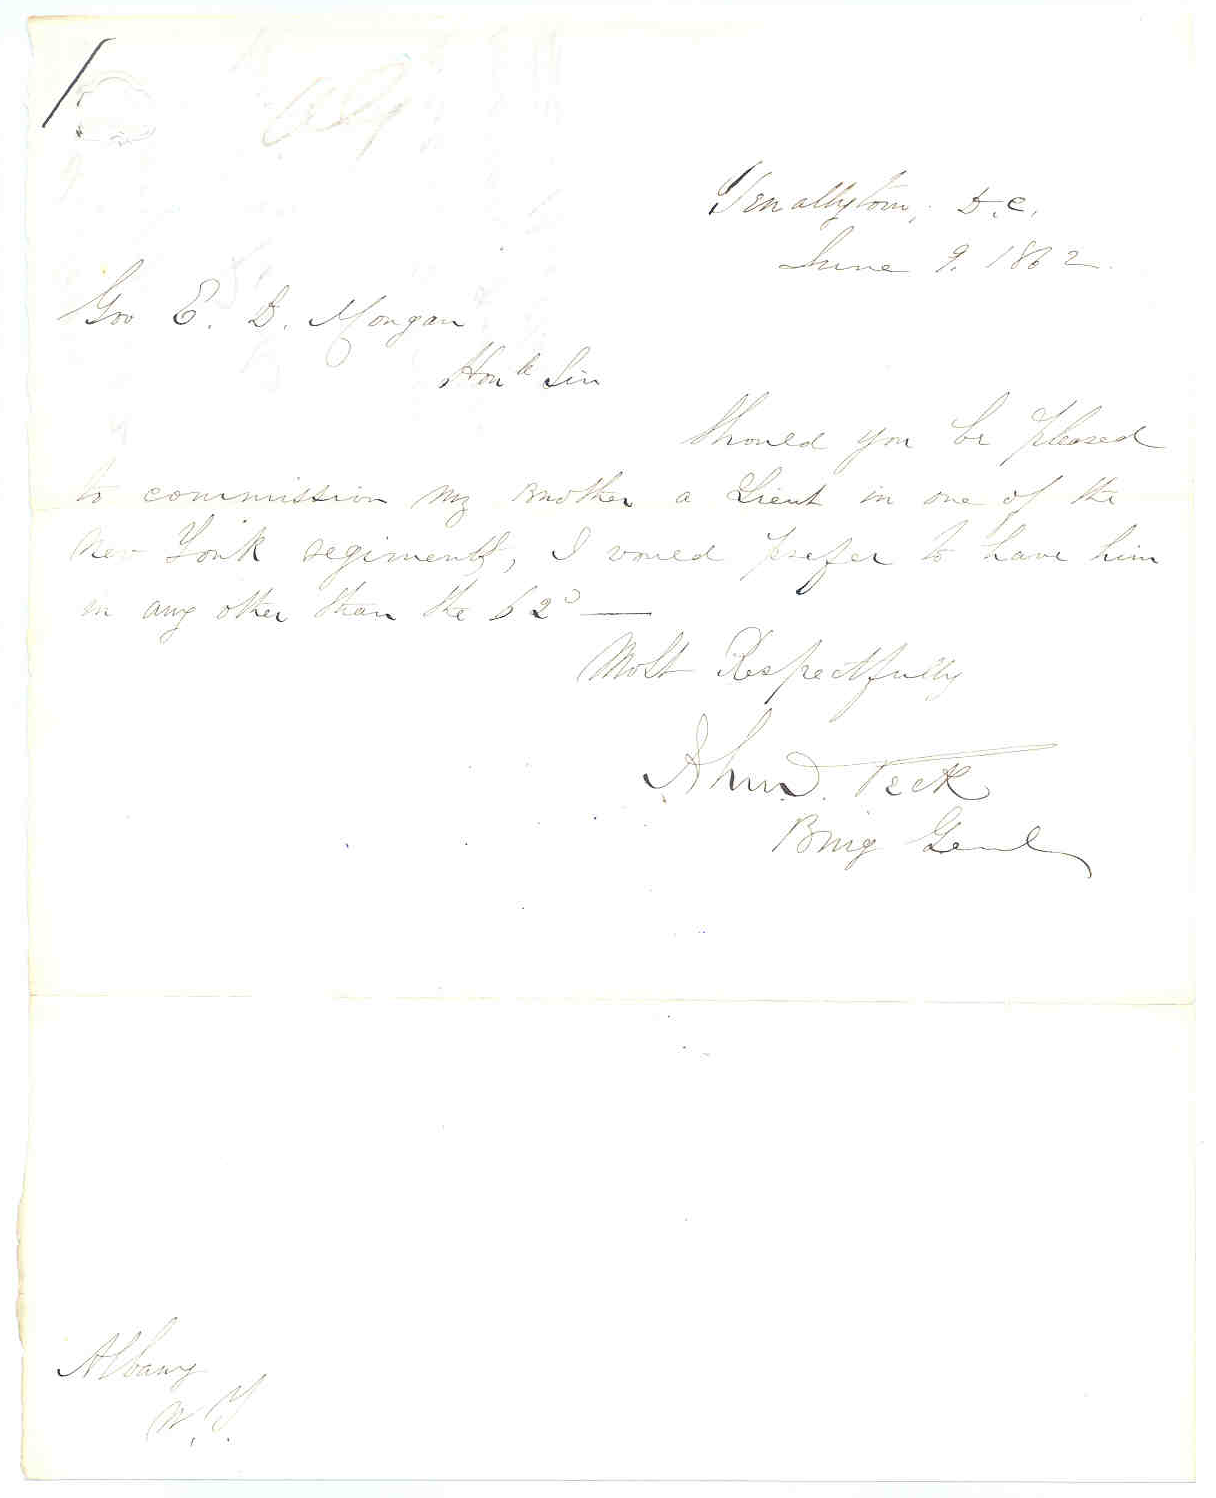 Tenallytown, D.C.
June 9. 1862.
Gov E. D. Morgan
Honble Sir
Should you be pleased
to commission my brother a Lieut in one of the
New York regiments, I would prefer to have him
in any other than the 62d —
Most Respectfully
John J. Peck
Brig Genl
Albany
N. Y.